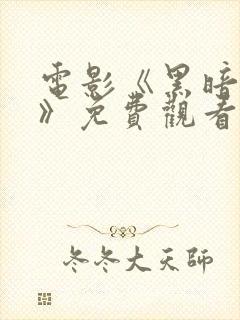 電影《黑暗
》免費觀看
冬冬大天師